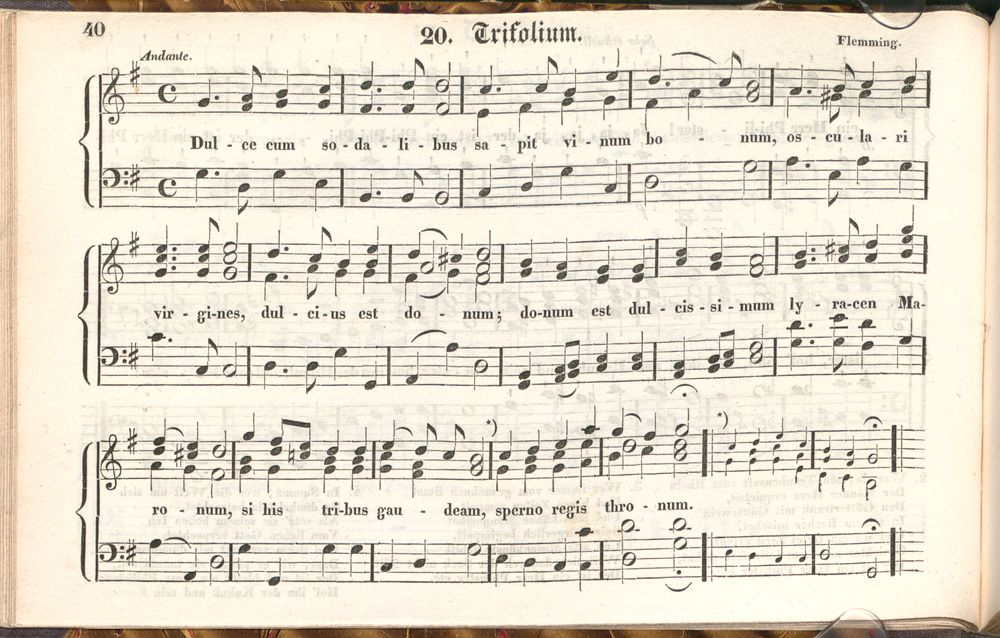 40
20. Trifolium.
Flemming.
Andante.
Dul - ce cum so - da - li - bus, sa - pit vi - num bo - - num, os - cu - la - ri
vir - gi-nes, dul - ci-us est do - num; do-num est dul - cis - si - mum ly - ra-cen Ma-
ro - num, si his tri-bus gau - deam, sperno regis thro - num.